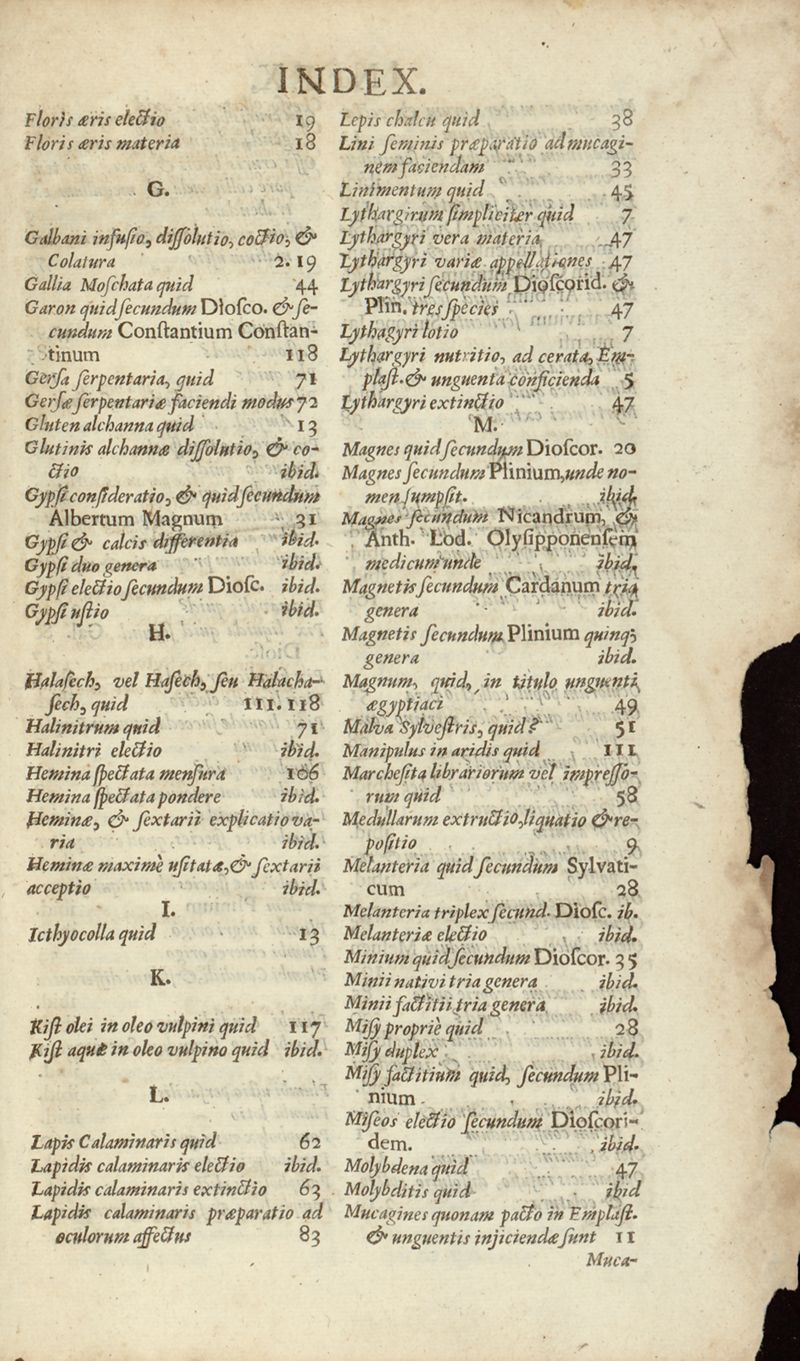 INDEX.
Floris æris electio 19
Floris æris materia 18
G.
Galbani infuſio, diſſolutio, coctio, &
Colatura 2. 19
Gallia Moſchata quid 44
Garon quid ſecundum Dioſco. & ſe-
cundum Conſtantium Conſtan-
tinum 118
Gerſa ſerpentaria, quid 71
Gerſæ ſerpentariæ faciendi modus 72
Gluten alchanna quid 13
Glutinis alchannæ diſſolutio, & co-
ctio ibid.
Gypſi conſideratio, & quid ſecundum
Albertum Magnum 31
Gypſi & calcis differentia ibid.
Gypſi duo genera ibid.
Gypſi electio ſecundum Dioſc. ibid.
Gypſi uſtio ibid.
H.
Halaſech, vel Haſech, ſeu Halacha-
ſech, quid 111. 118
Halinitrum quid 71
Halinitri electio ibid.
Hemina ſpectata menſura 106
Hemina ſpectata pondere ibid.
Heminæ, & ſextarii explicatio va-
ria ibid.
Heminæ maximè uſitatæ, & ſextarii
acceptio ibid.
I.
Icthyocolla quid 13
K.
Kiſt olei in oleo vulpini quid 117
Kiſt aquæ in oleo vulpino quid ibid.
L.
Lapis Calaminaris quid 62
Lapidis calaminaris electio ibid.
Lapidis calaminaris extinctio 63
Lapidis calaminaris præparatio ad
oculorum affectus 83
Lepis chalcu quid 38
Lini ſeminis præparatio ad mucagi-
nem faciendam 33
Linimentum quid 45
Lythargirum ſimpliciter quid 7
Lythargyri vera materia 47
Lythargyri variæ appellationes 47
Lythargyri ſecundum Dioſcorid. &
Plin. tres ſpecies 47
Lythagyri lotio 7
Lythargyri nutritio, ad cerata, Em-
plaſt. & unguenta conficienda 5
Lythargyri extinctio 47
M.
Magnes quid ſecundum Dioſcor. 20
Magnes ſecundum Plinium, unde no-
men ſumpſit. ibid.
Magnes ſecundum Nicandrum, &
Anth. Lod. Olyſipponenſem
medicum unde ibid.
Magnetis ſecundum Cardanum tria
genera ibid.
Magnetis ſecundum Plinium quinq;
genera ibid.
Magnum, quid, in titulo unguenti
ægyptiaci 49
Malva Sylveſtris, quid? 51
Manipulus in aridis quid 111
Marcheſita librariorum vel impreſſo-
rum quid 58
Medullarum extructio, liquatio & re-
poſitio 9
Melanteria quid ſecundum Sylvati-
cum 28
Melanteria triplex ſecund. Dioſc. ib.
Melanteriæ electio ibid.
Minium quid ſecundum Dioſcor. 35
Minii nativi tria genera ibid.
Minii factitii tria genera ibid.
Miſy propriè quid 28
Miſy duplex ibid.
Miſy factitium quid, ſecundum Pli-
nium ibid.
Miſeos electio ſecundum Dioſcori-
dem. ibid.
Molybdena quid 47
Molybditis quid ibid
Mucagines quonam pacto in Emplaſt.
& unguentis injiciendæ ſunt 11
Muca-